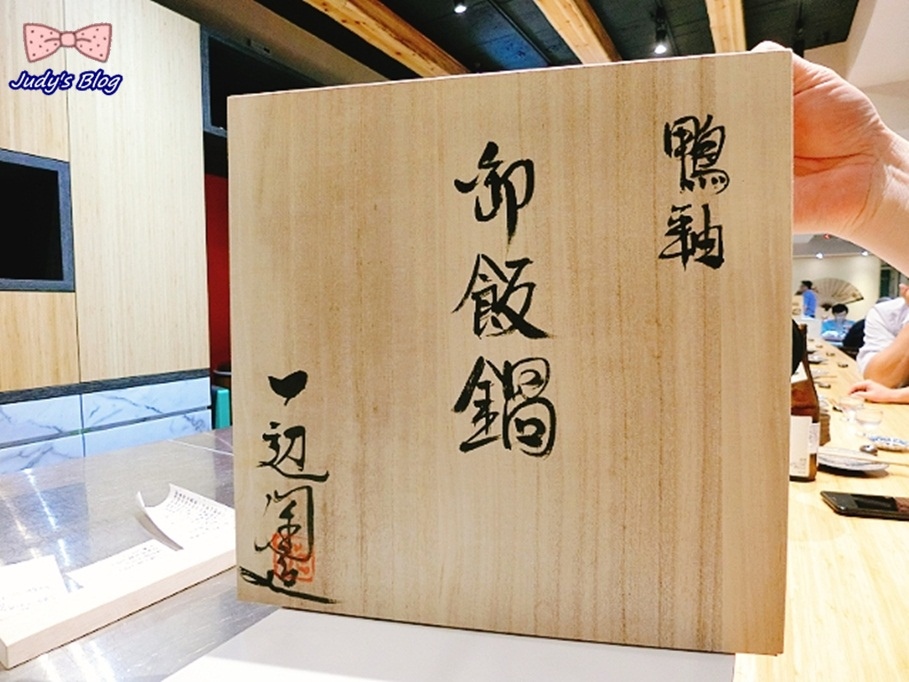 Judy's Blog
鴨釉
御飯鍋
一辺陶造